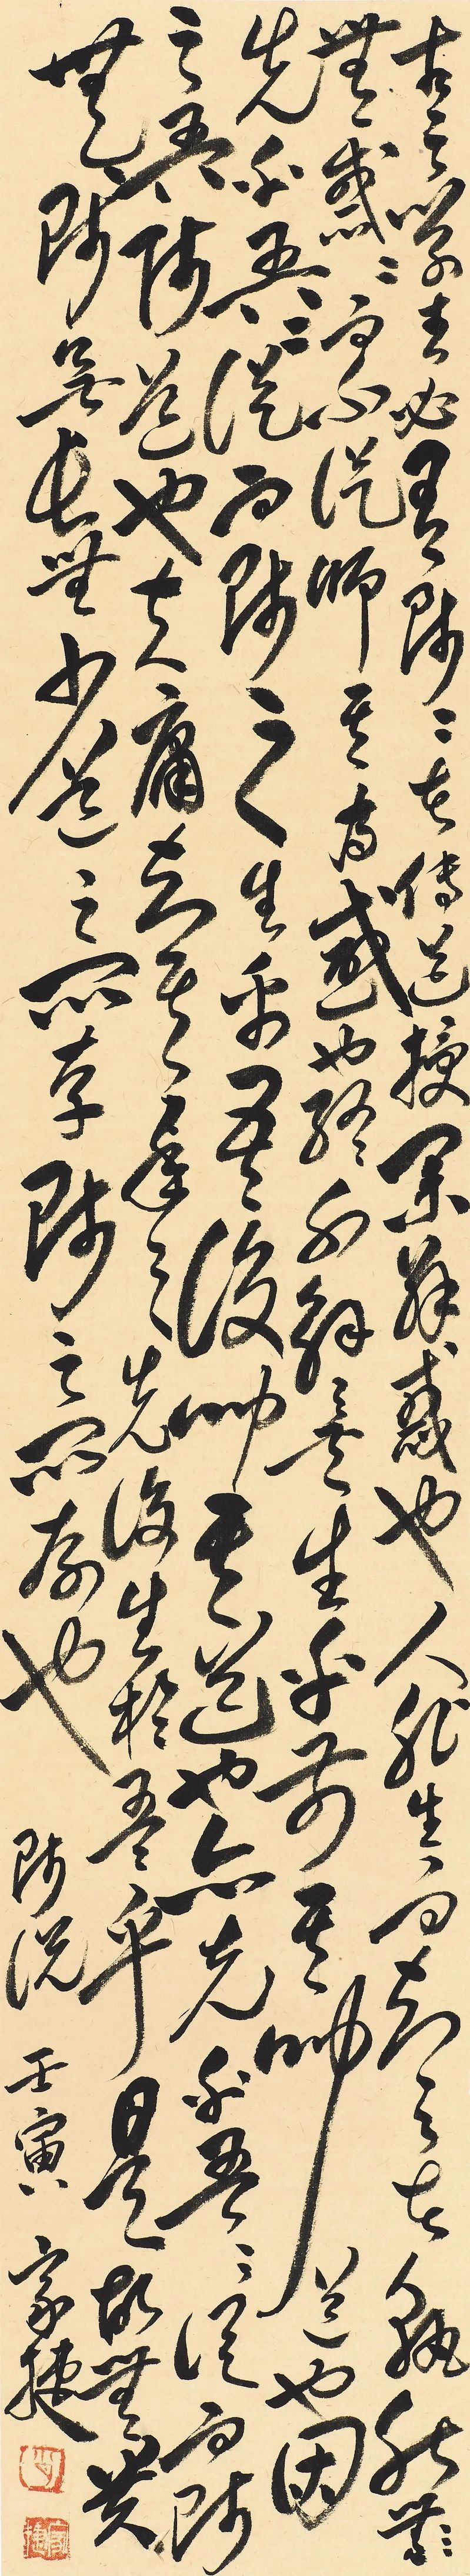 古之學者必有師〻者傳道授業解惑也人非生而知之者孰能無
無惑〻而不從師其為惑也終不解矣生乎前其聞道也固
先乎吾〻從而師之生乎吾後聞其道也亦先乎吾〻從而師
之吾師道也夫庸知其年之先後生於吾乎是故無貴
無賤無長無少道之所存師之所存也 師說 壬寅 家捷